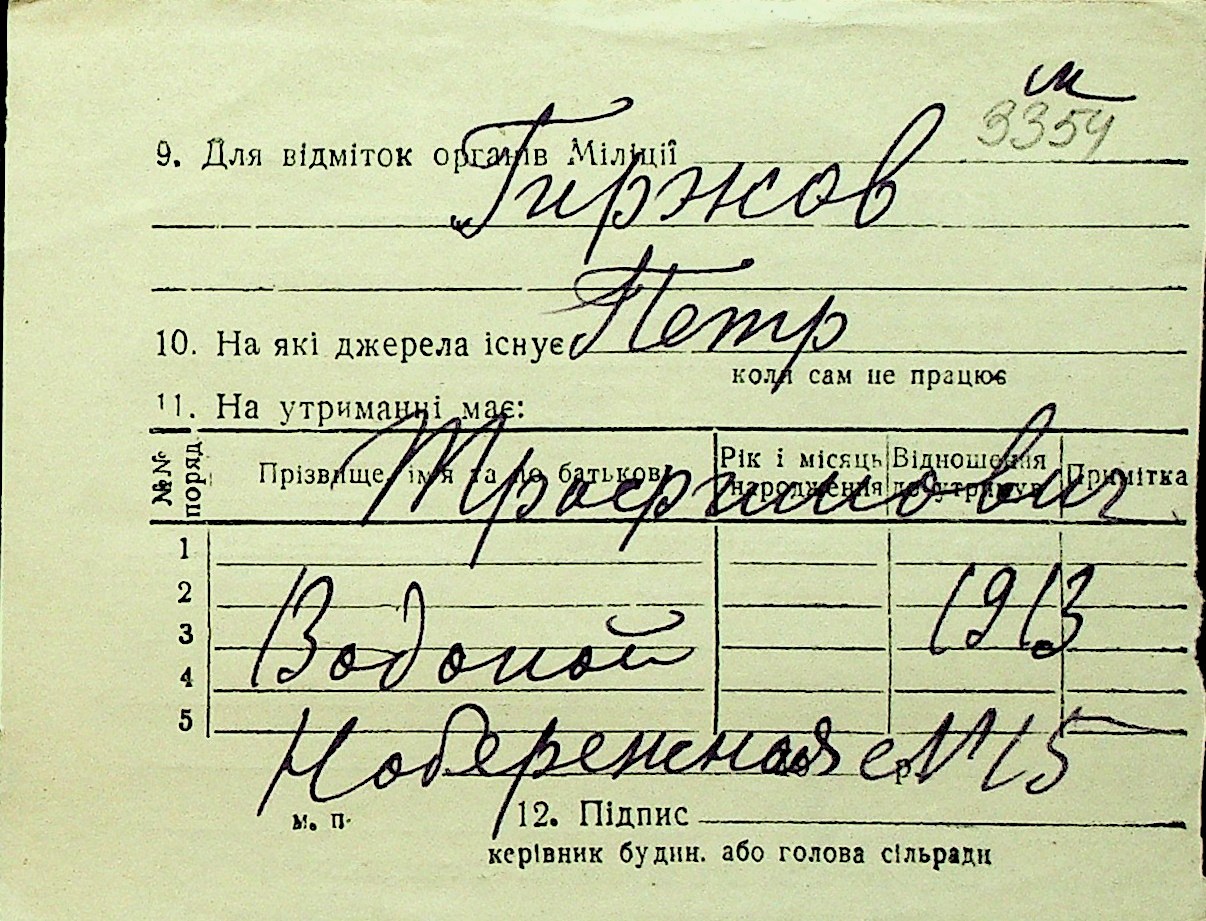 м
3354
9. Для відміток органів Міліції
Гиржов
10. На які джерела існує
Петр
коли сам не працює
11. На утриманні має:
№№ поряд
Прізвище, ім'я та по батькові
Рік і місяць народження
Відношення до утримув.
Примітка
Трофимович
1
2
3
4
5
1913
Водопой
Набережная с N 15
м. п.
12. Підпис
керівник будин. або голова сільради